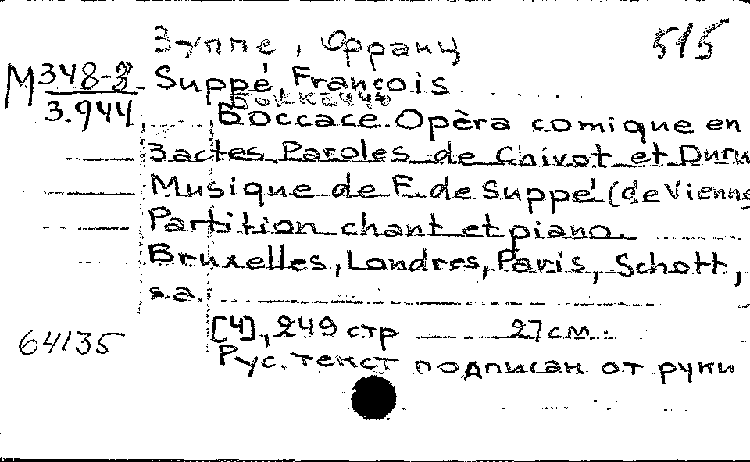 Зуппе, Франц 515
М 348-3 Suppé, François
3.944 Боккаччо
Boccace. Opéra comique en
3 actes. Paroles de Chivot et Duru
Musique de F. de Suppé (de Vienne
Partition chant et piano.
Bruxelles, Londres, Paris, Schott,
s.a.
[4], 249 стр 27 см.
64135 Рус. текст подписан от руки